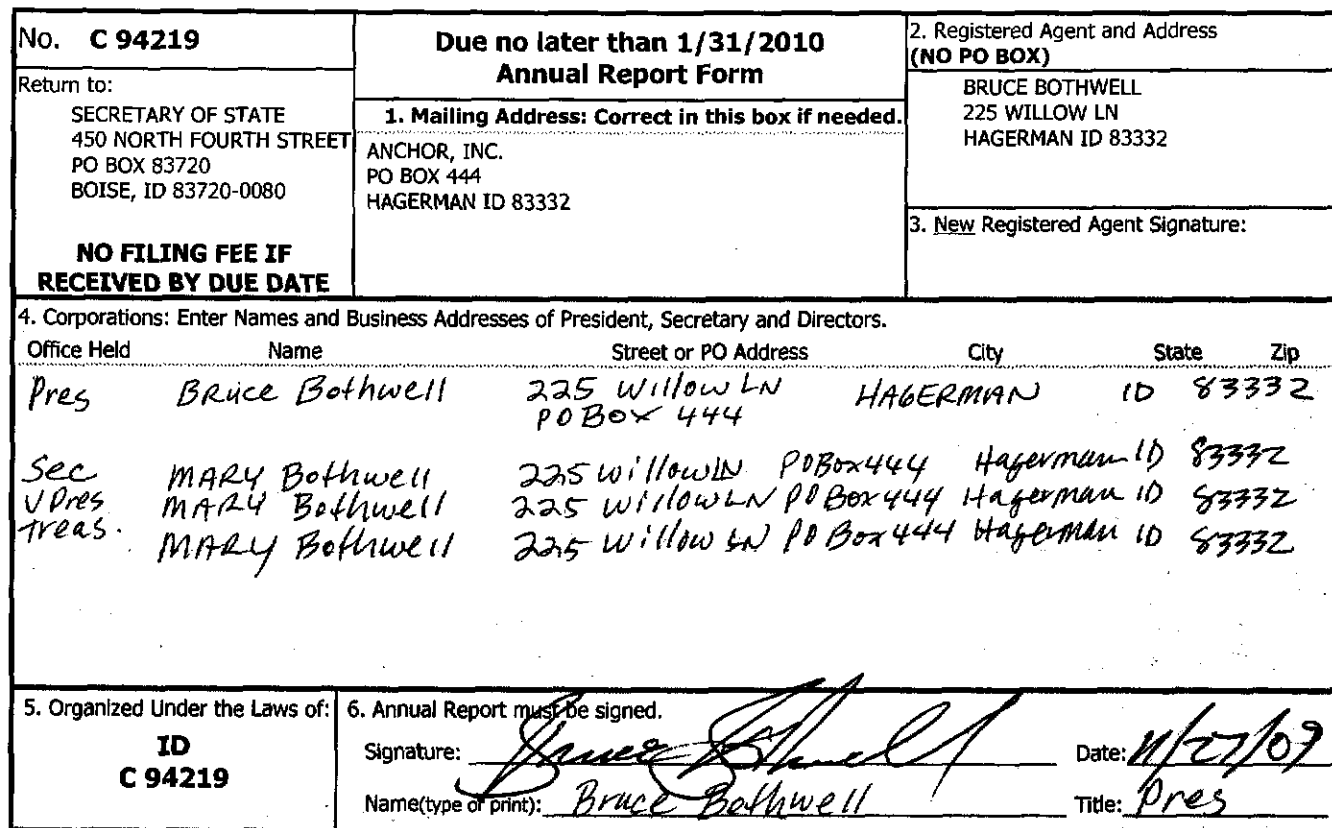 No. C 94219
Return to:
SECRETARY OF STATE
450 NORTH FOURTH STREET
PO BOX 83720
BOISE, ID 83720-0080
NO FILING FEE IF
RECEIVED BY DUE DATE
Due no later than 1/31/2010
Annual Report Form
1. Mailing Address: Correct in this box if needed.
ANCHOR, INC.
PO BOX 444
HAGERMAN ID 83332
2. Registered Agent and Address
(NO PO BOX)
BRUCE BOTHWELL
225 WILLOW LN
HAGERMAN ID 83332
3. New Registered Agent Signature:
4. Corporations: Enter Names and Business Addresses of President, Secretary and Directors.
Office Held Name Street or PO Address City State Zip
Pres Bruce Bothwell 225 Willow LN HAGERMAN ID 83332
PO Box 444
Sec MARY Bothwell 225 Willow LN PO Box 444 Hagerman ID 83332
V Pres MARY Bothwell 225 Willow LN PO Box 444 Hagerman ID 83332
treas. MARY Bothwell 225 Willow LN PO Box 444 Hagerman ID 83332
5. Organized Under the Laws of:
ID
C 94219
6. Annual Report must be signed.
Signature: Bruce Bothwell Date: 11/27/09
Name(type or print): Bruce Bothwell Title: Pres